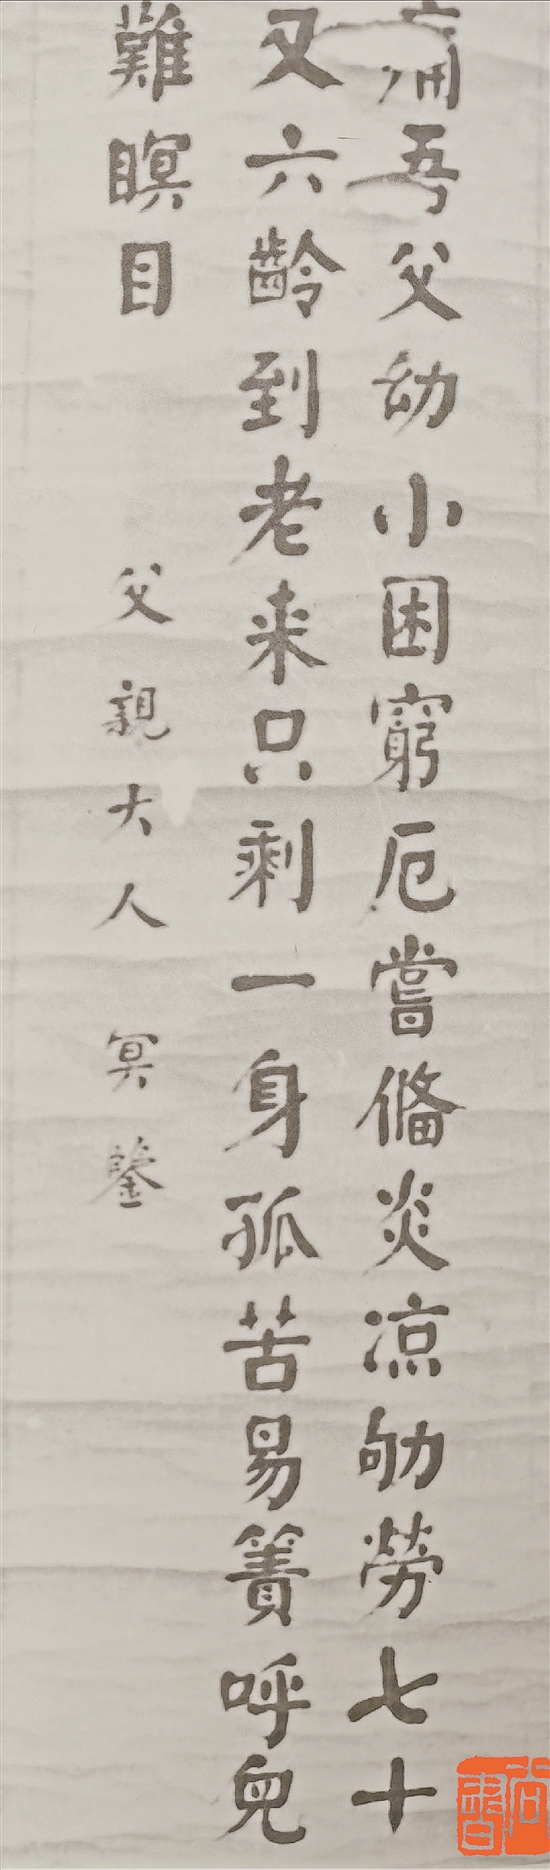 痛吾父幼小困窮厄嘗備炎凉劬勞七十
又六齡到老来只剩一身孤苦易簀呼兒
難瞑目
父親大人 冥鑒
尚書